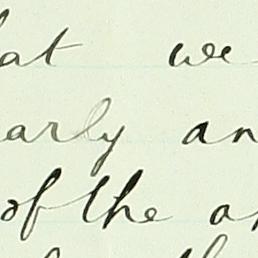 at we
arly an
of the a